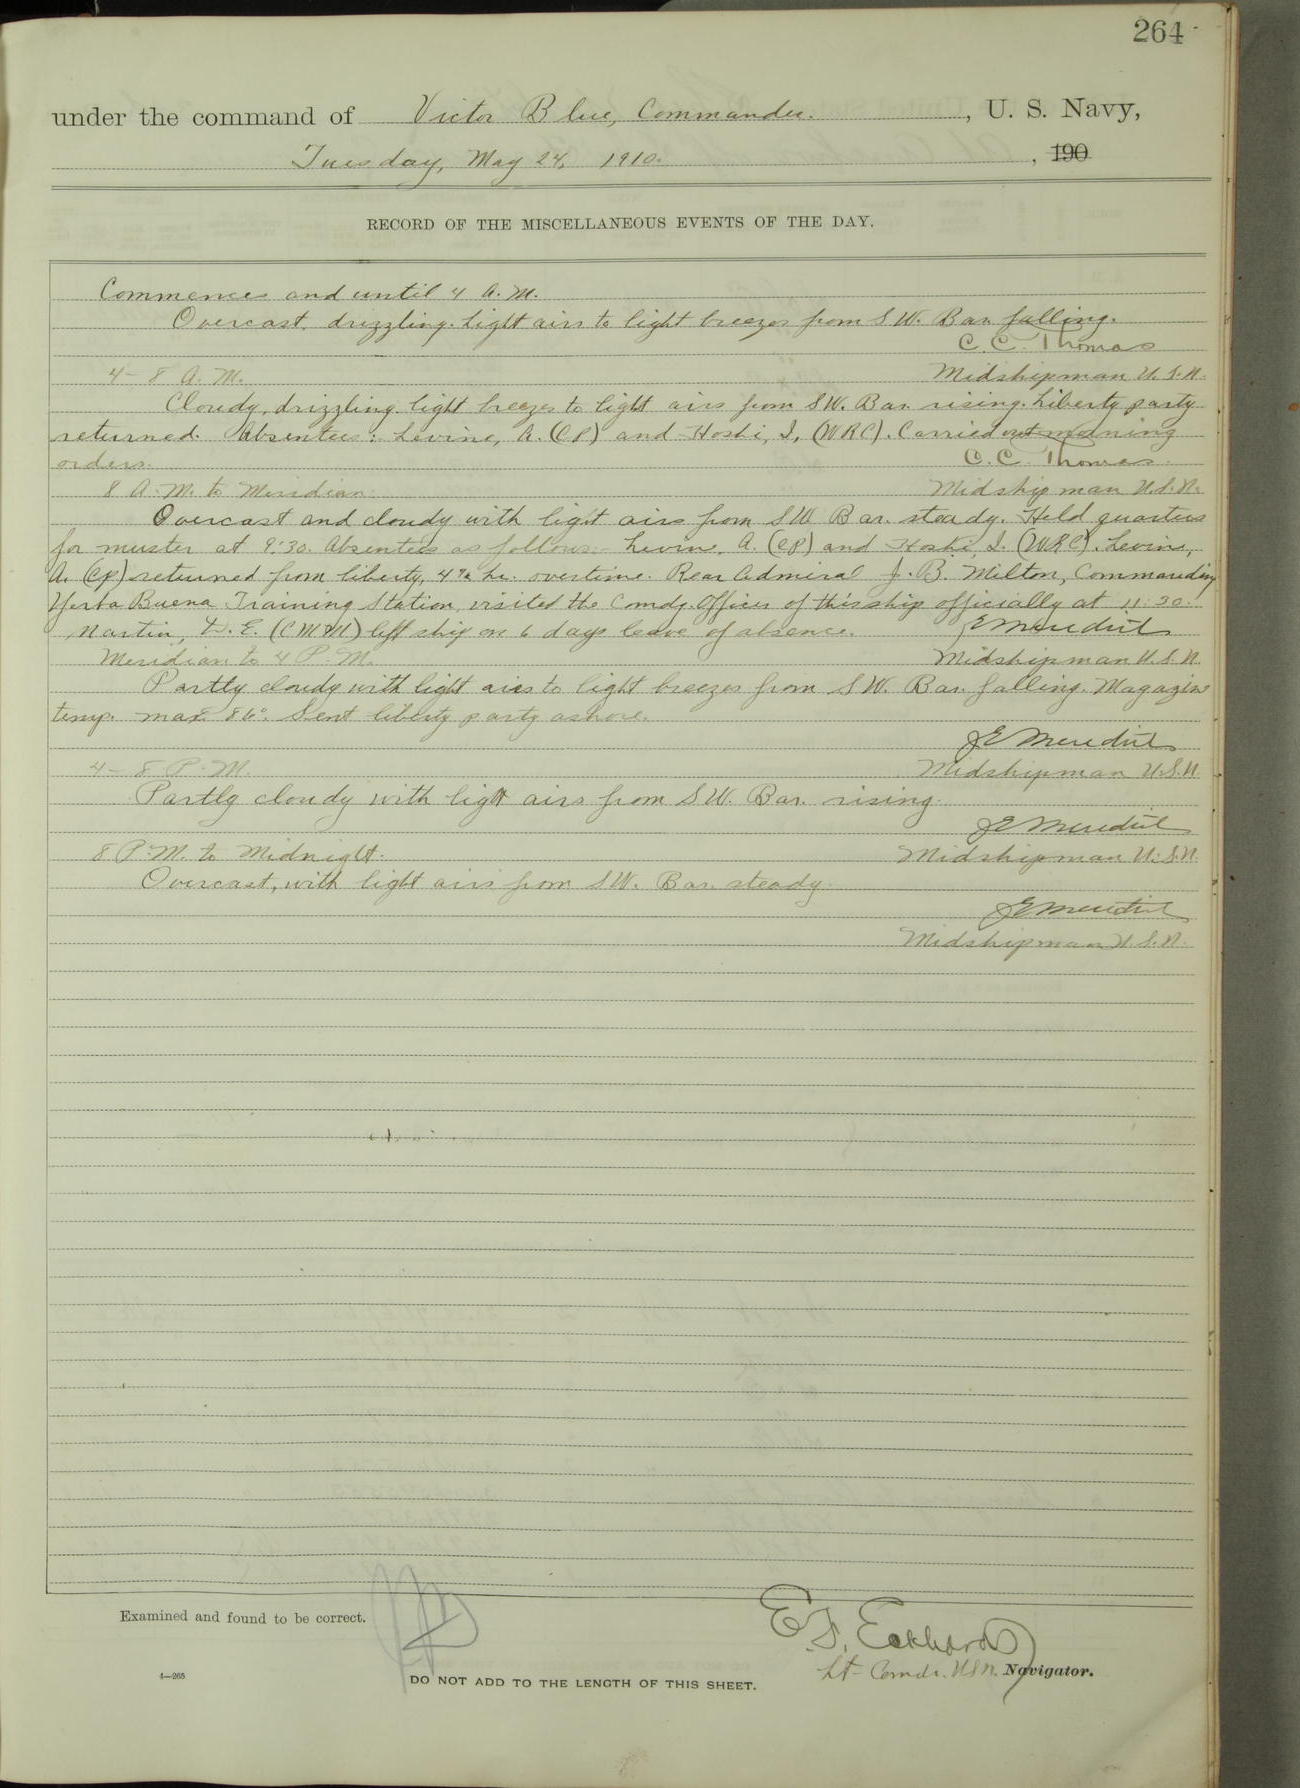 264
under the command of Victor Blue, Commander. , U. S. Navy,
Tuesday, May 24, 1910. , 190
RECORD OF THE MISCELLANEOUS EVENTS OF THE DAY.
Commences and until 4 A.M.
Overcast, drizzling. Light airs to light breezes from SW. Bar. falling.
C. C. Thomas
4 - 8 A.M. Midshipman U.S.N.
Cloudy, drizzling. light breezes to light airs from SW. Bar. rising. Liberty party
returned. Absentees: Levine, A. (CP) and Hoshi, I, (WRC). Carried out morning
orders. C. C. Thomas
8 A.M. to Meridian. Midshipman U.S.N.
Overcast and cloudy with light airs from SW Bar. steady. Held quarters
for muster at 9:30. Absentees as follows:- Levine, A. (CP) and Hoshi, I. (WRC). Levine,
A. (CP) returned from liberty, hr. overtime. Rear Admiral J. B. Milton, Commanding
Yerba Buena Training Station, visited the Comdg. Officer of this ship officially at 11:30.
Martin, E. (CMM) left ship on 6 days leave of absence. JE Meredith
Meridian to 4 P.M. Midshipman U.S.N.
Partly cloudy with light airs to light breezes from SW. Bar. falling. Magazine
temp. max 86°. Sent liberty party ashore.
JE Meredith
4 - 8 P.M. Midshipman U.S.N.
Partly cloudy with light airs from SW. Bar. rising.
JE Meredith
8 P.M. to Midnight. Midshipman U.S.N.
Overcast, with light airs from SW. Bar. steady.
JE Meredith
Midshipman U.S.N.
Examined and found to be correct.
E. F. Eckhardt
Lt-Comdr. USN. Navigator.
4—265
DO NOT ADD TO THE LENGTH OF THIS SHEET.